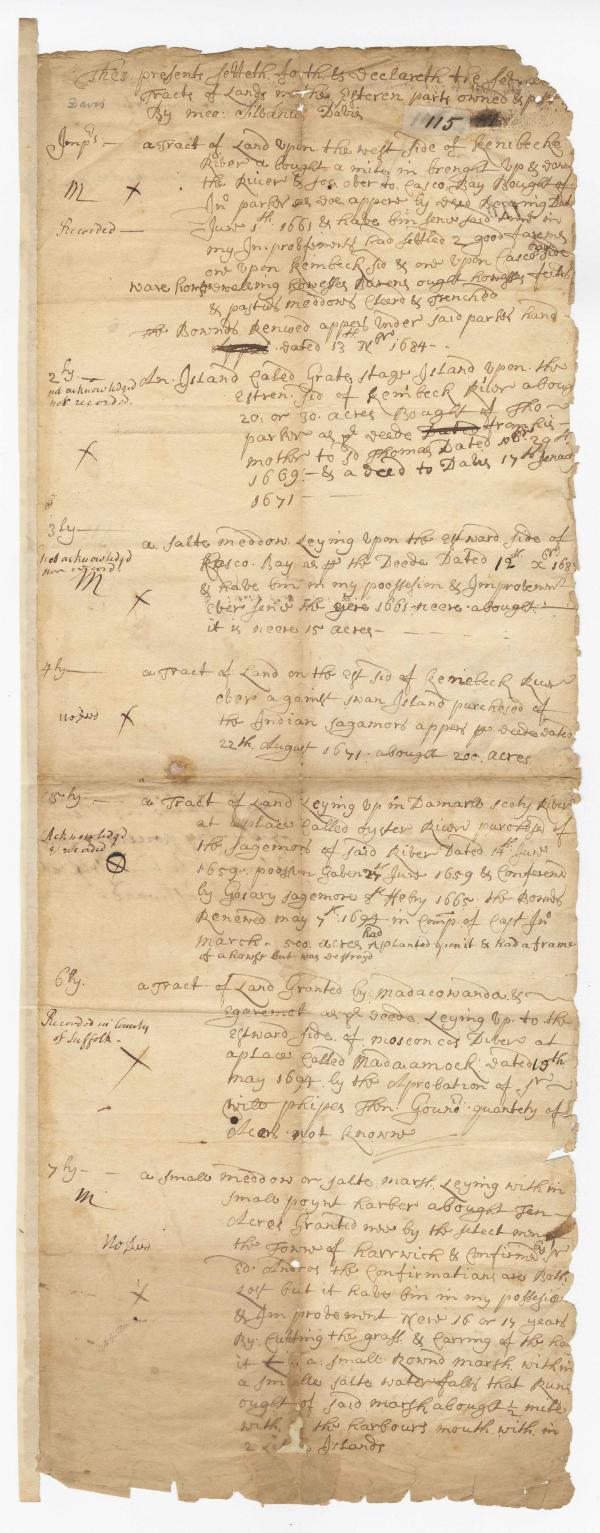 Thes presents setteth forth & Declareth the
Tracts of Lands in the Esteren parts owned &
Davis
By mee: Silvanus Davis
115
Jmprs — a Tract of Land upon the west side of Kenibecke
River a bought a mile in brenght up & down
M × the River & soe over to Casco Bay Bought of
Jno parker as doe appere by deed Bereing Dat
Recorded — June 1th 1661 & have bin senc said time in
my Jmprovements had settled 2 good farmes
one upon Kenibeck sid & one upon Casco side
ware howse dweleing howesses Barens ought howsses feilds
& pasturs meddows Cleerd & Trenched
the Bownds Renued appers under said parkes hand
dated 13th Xbr 1684 -
2ly — An Island Caled Grate stage Island upon the
not acknowledged Estren sid of Kenibeck River aboug
not recorded. 20 or 30 acres Bought of Tho
parker as pr deede Dated from his
× mother to sd Thomas Dated 10br 29th
1669 - & a deed to Davis 17th Jenuary
1671 —
3ly — a salte meddow Leying upon the Estward side of
not acknowledgd Casco Bay as pr the Deede Dated 12th Xbr 168
nor record. & have bin in my possesion & Jmprovemnt
M × ever senc the yere 1661 neere abought
it is neere 15 acres -
4ly — a Tract of Land on the Est sid of Keniebeck River
over against swan Island purchased of
no Jurs × the Indian sagamors appers pr deede dated
22th August 1671 abought 200 acres
5ly — a Tract of Land Leying up in Damaris Scoty River
at a place Called oyster River purchased of
Acknowledgd the sagemors of said River Dated 14th June
& recorded 1659 possesn Gaven 27th June 1659 & Confermd
by Gosary sagemore 8th Febry 1665 the Bownds
Renewed may 7th 1694 in Comp. of Capt Jno
March - 500 acres had planted upon it & had a frame
of a howse but was destroyd
6ly. a Tract of Land Granted by madacowanda &
Egeremet as pr deede Leying up to the
Recorded in County Estward side of moscon cos River at
of Suffolk - a place Called Madaamock dated 10th
× may 1694 by the Aprobation of Sr
will phipes Then Gounr quantety of
Acers not Knowne
7ly — a small meddow or salte marsh Leying with in
M small poynt harber abought Ten
Acres Granted mee by the select men
No Jurs the Towne of Harrwick & Confirmed by Sr
Ed: Andros the Confirmations are Both
× Lost but it have bin in my possesion
& Jmprovement Nere 16 or 17 years
By Cutting the grass & Carring of the ha
it a small Rownd marsh with in
a smalle salte water falls that Runs
ought of said marsh abought ½ mile
with the harbours mouth with in
2 Islands